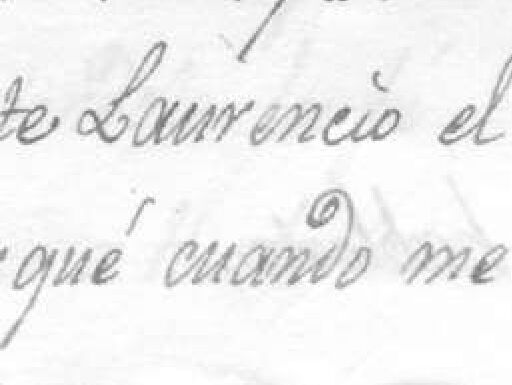 te Laurencio el
rqué cuando me